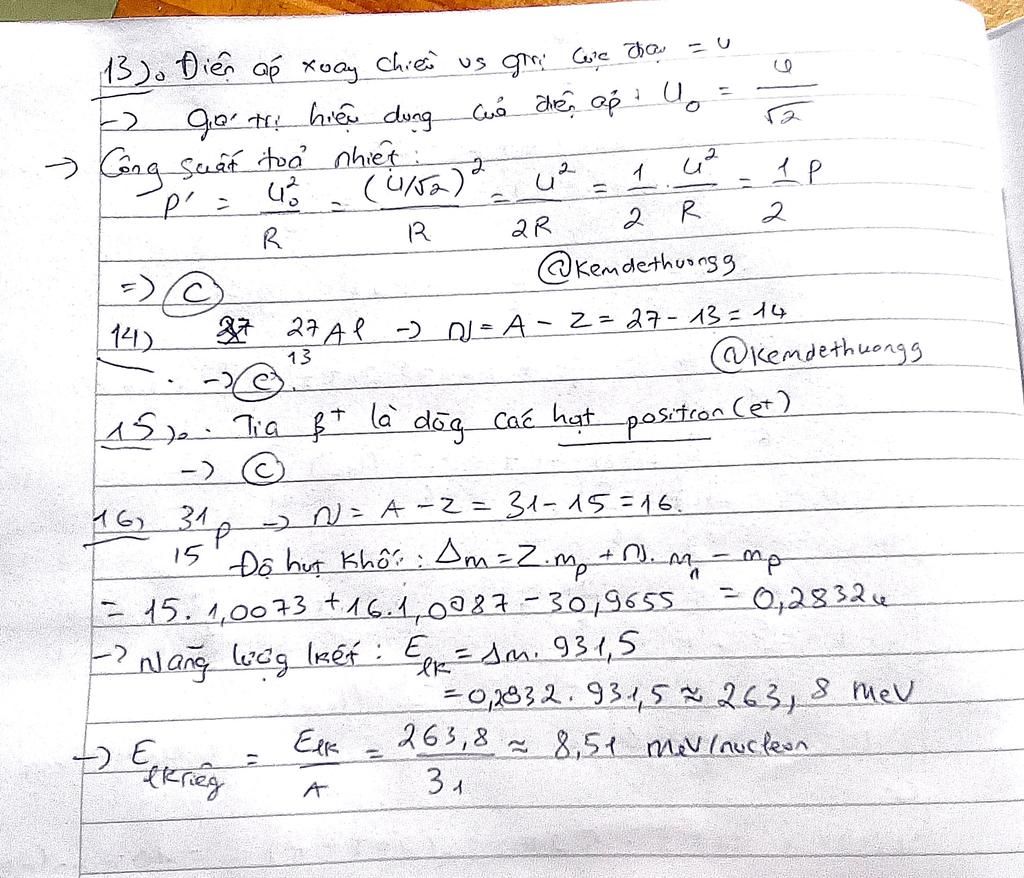 13). Điện áp xoay chiều vs gtrị cực đại = U
-> giá trị hiệu dụng của điện áp: U₀ = U/√2
-> Công suất toả nhiệt:
P' = U₀²/R = (U/√2)²/R = U²/2R = 1/2 . U²/R = 1/2 P
=> C
@Kemdethuongg
14) ²⁷₁₃Al -> N = A - Z = 27 - 13 = 14
@Kemdethuongg
-> C.
15). Tia β⁺ là dòg các hạt positron (e+)
-> C
16) ³¹₁₅P -> N = A - Z = 31 - 15 = 16.
Độ hụt khối: Δm = Z.mp + N.mn - mp
= 15.1,0073 + 16.1,0087 - 30,9655 = 0,2832u
-> Năng lượg lkết: Elk = Δm. 931,5
= 0,2832 . 931,5 ≈ 263,8 MeV
-> Elkriêg = Elk/A = 263,8/31 ≈ 8,51 MeV/nucleon